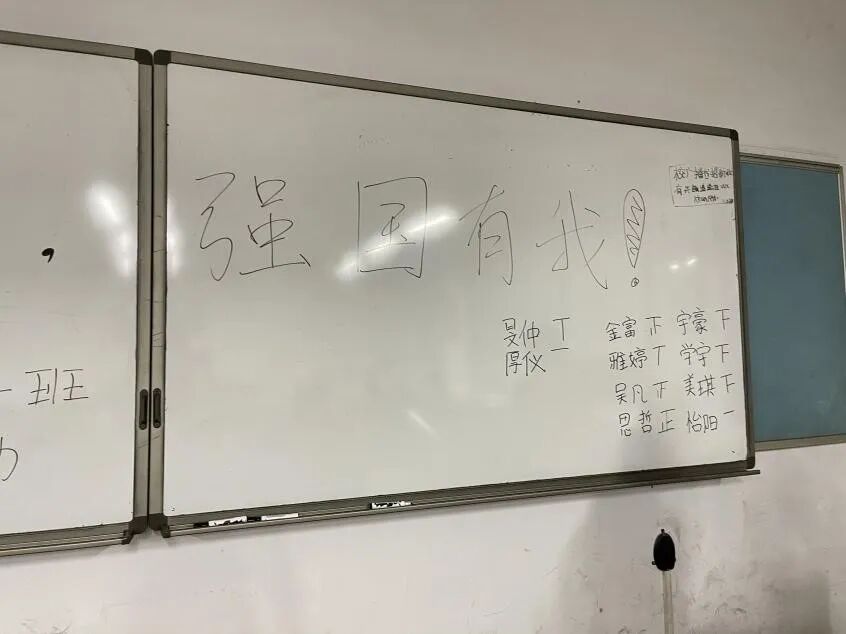 强国有我!
旻仲 丅 金富 正 宇豪 下
厚仪 一 雅婷 丅 学宇 下
吴凡 正 美琪 下
思哲 正 怡阳 一
一班